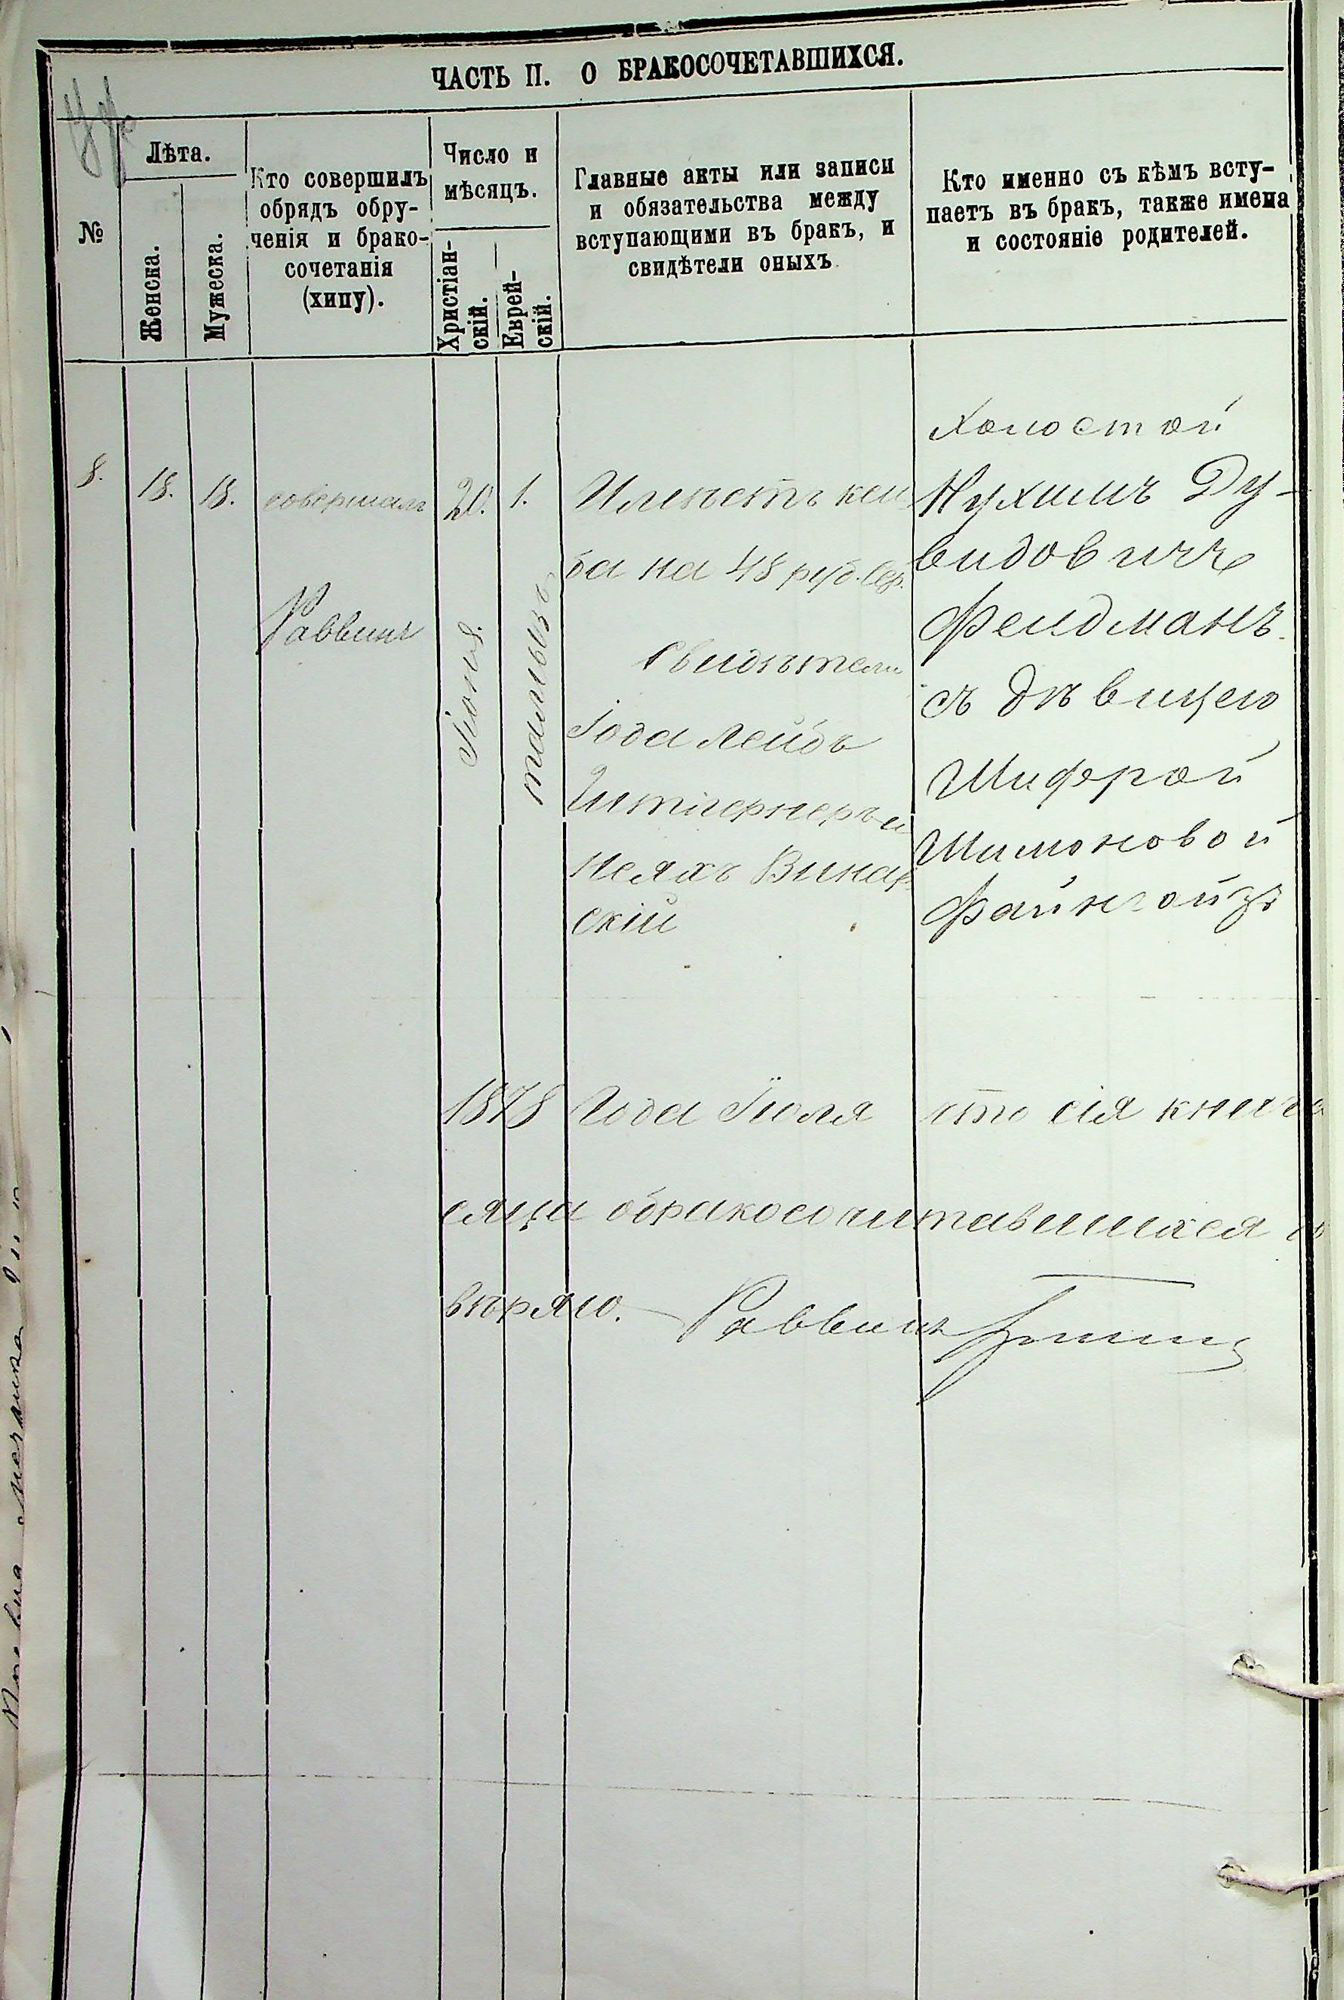 ЧАСТЬ II. О БРАКОСОЧЕТАВШИХСЯ.
№
Лѣта.
Женска.
Мужеска.
Кто совершилъ
обрядъ обру-
ченія и брако-
сочетанія
(хипу).
Число и
мѣсяцъ.
Христіан-
скій.
Еврей-
скій.
Главные акты или записи
и обязательства между
вступающими въ бракъ, и
свидѣтели оныхъ
Кто именно съ кѣмъ всту-
паетъ въ бракъ, также имена
и состояніе родителей.
8.
18.
18.
совершалъ
Раввинъ
20.
Іюня.
1.
тамызъ
на 48 руб. сер.
Свидѣтели
Іода Лейбъ
Винар
скій
Холостой
Нухимъ Ду-
видовичъ
Фелдманъ
съ дѣвицею
Шифрой
Шимоновой
1878 года Іюля что сія книга
о бракосочитавшихся
вѣряю. Раввинъ